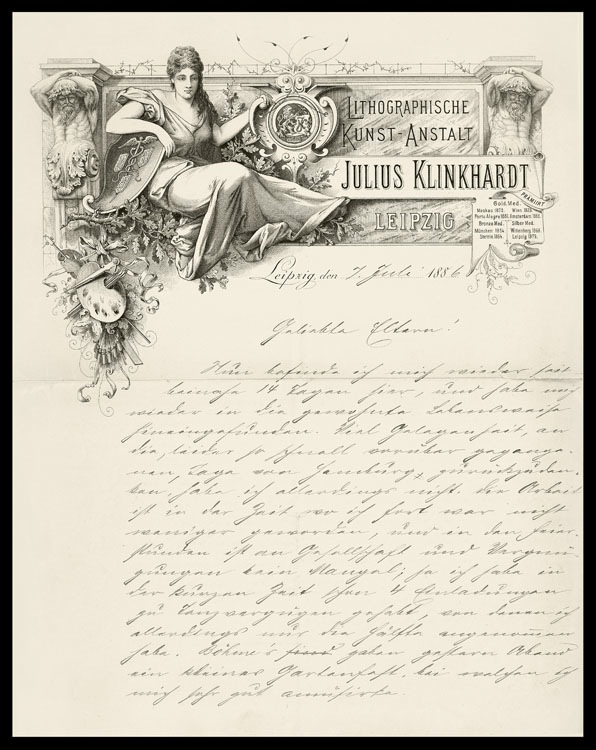 LITHOGRAPHISCHE
KUNST-ANSTALT
JULIUS KLINKHARDT
LEIPZIG
PRÄMIIRT
Gold. Med.
Moskau 1872. Wien 1873.
Porto Alegre 1881. Amsterdam 1883.
Bronze Med. Silber Med.
München 1854. Wittenberg 1869.
Stettin 1864. Leipzig 1879.
Leipzig, den 7. Juli 1886
Geliebte Eltern!
Nun befinde ich mich wieder seit
beinahe 14 Tagen hier, und habe mich
wieder in die gewohnte Lebensweise
hineingefunden. Viel Gelegenheit, an
die, leider so schnell vorüber gegange-
nen, Tage von Hamburg, zurückzuden-
ken, habe ich allerdings nicht. Die Arbeit
ist in der Zeit wo ich fort war nicht
weniger geworden, und in den Feier-
stunden ist an Gesellschaft und Vergnü-
gungen kein Mangel; ja ich habe in
der kurzen Zeit schon 4 Einladungen
zu Tanzvergnügen gehabt, von denen ich
allerdings nur die Hälfte angenommen
habe. Böhme's gaben gestern Abend
ein kleines Gartenfest, bei welchen ich
mich sehr gut amüsirte.